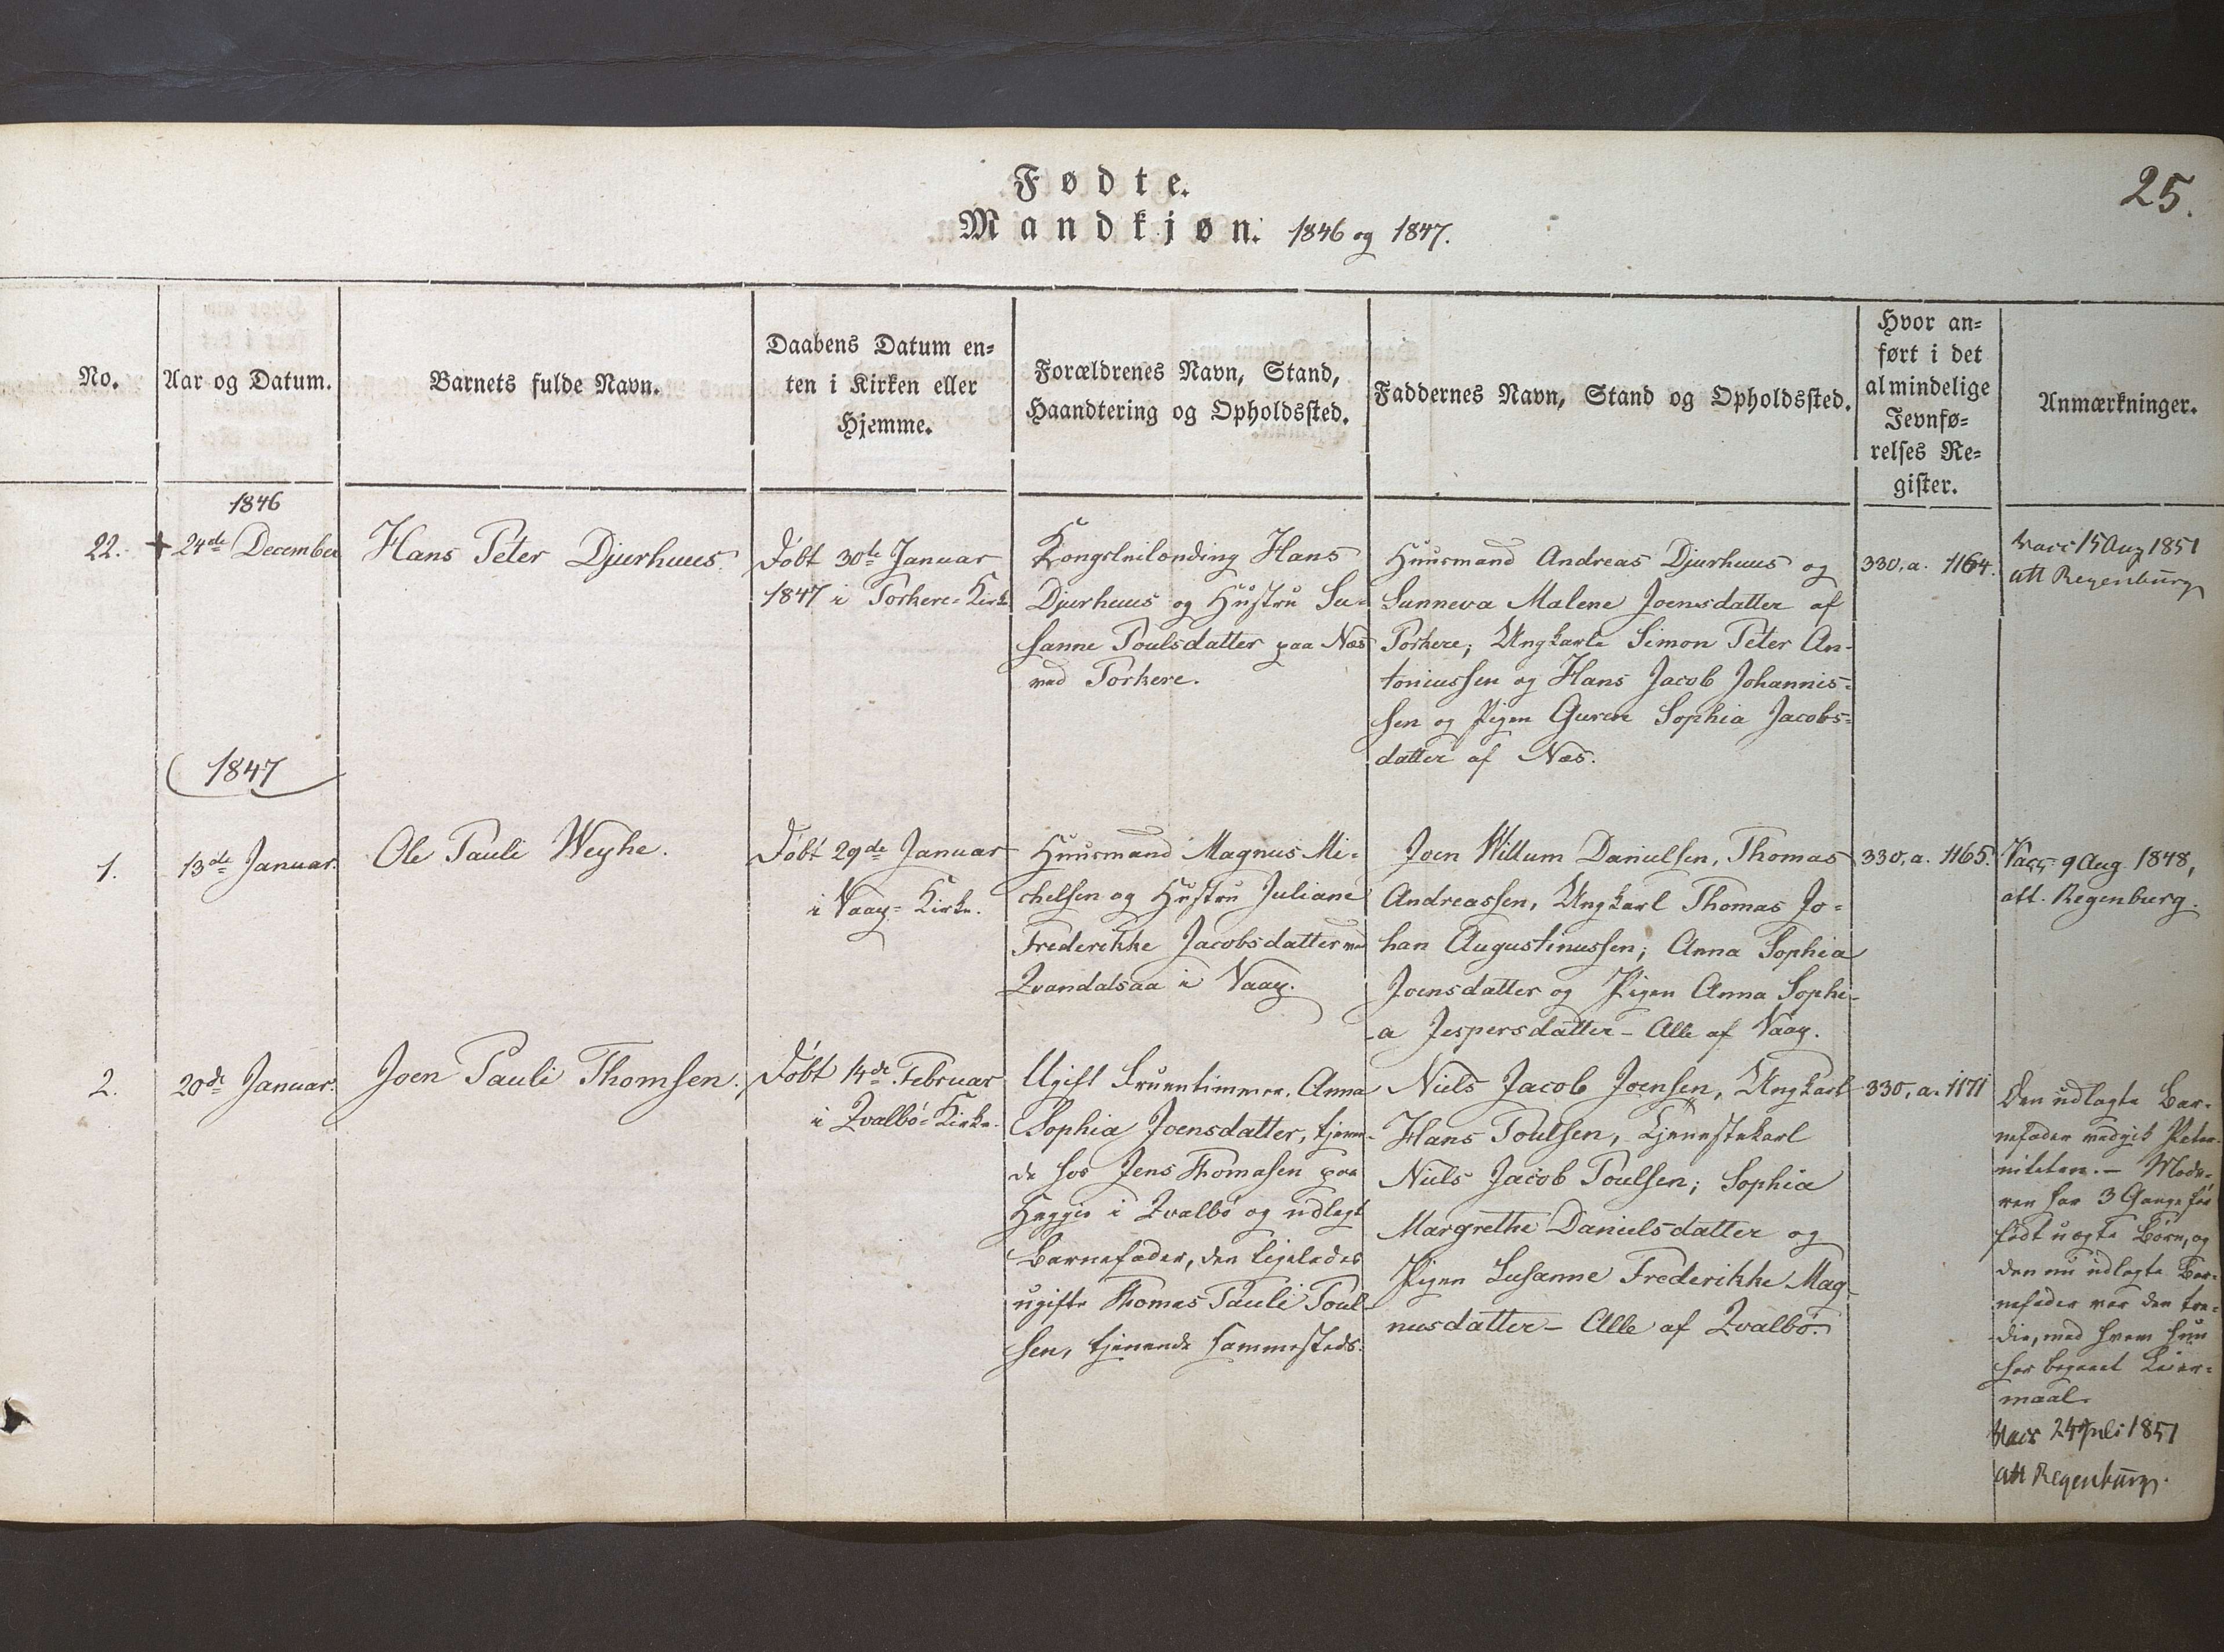 25.
Fødte.
Mandkjøn. 1846 og 1847.
No.
Aar og Datum.
Barnets fulde Navn.
Daabens Datum en=
ten i Kirken eller
Hjemme.
Forældrenes Navn, Stand,
Haandtering og Opholdssted.
Faddernes Navn, Stand og Opholdssted.
Hvor an=
ført i det
almindelige
Jevnfø=
relses Re=
gister.
Anmærkninger.
1846
22.
+ 24de December
Hans Peter Djurhuus.
Døbt 30te Januar
1847 i Porkere-Kirke
Kongsleilænding Hans
Djurhuus og Hustru Su-
sanne Poulsdatter paa Næs
ved Porkere.
Huusmand Andreas Djurhuus og
Sunneva Malene Joensdatter af
Porkere; Ungkarle Simon Peter An-
toniussen og Hans Jacob Johannis-
sen og Pigen Guren Sophia Jacobs-
datter af Næs.
330, a. 1164.
Vacc 15 Aug 1851
att Regenburg
1847
1.
13de Januar.
Ole Pauli Weyhe.
Døbt 29de Januar
i Vaag-Kirke.
Huusmand Magnus Mi-
chelsen og Hustru Juliane
Frederikke Jacobsdatter ved
Qvandalsaa i Vaag.
Joen Willum Danielsen, Thomas
Andreassen, Ungkarl Thomas Jo-
han Augustinussen; Anna Sophia
Joensdatter og Pigen Anna Sophi-
a Jespersdatter - Alle af Vaag.
330, a. 1165.
Vacc. 9 Aug. 1848,
att. Regenburg.
2.
20de Januar.
Joen Pauli Thomsen.
Døbt 14de Februar
i Qvalbø-Kirke.
Ugift Fruentimmer, Anna
Sophia Joensdatter, tjenen-
de hos Jens Thomasen paa
i Qvalbø og udlagt
Barnefader, den ligeledes
ugifte Thomas Pauli Poul-
sen, tjenende sammesteds.
Niels Jacob Joensen, Ungkarl
Hans Poulsen, Tjenestekarl
Niels Jacob Poulsen; Sophia
Margrethe Danielsdatter og
Pigen Susanne Frederikke Mag-
nusdatter - Alle af Qvalbø.
330, a. 1171
Den udlagte Bar-
nefader vedgik Pater-
niteten. - Mode-
ren har 3 Gange før
født uægte Børn, og
den nu udlagte Bar-
nefader var den tre-
die, med hvem hun
har begaaet Leier-
maal.
Vacc 24 Juli 1851
att Regenburg.